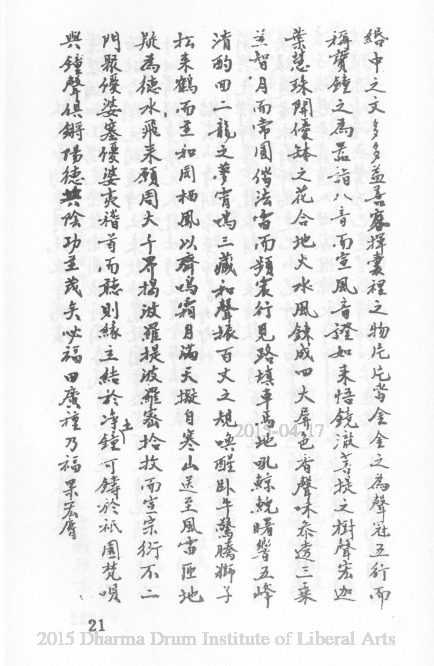 緡中之文多多益善奩擇囊裡之物片片皆金金之為聲冠五行而
稱贊鐘之為器詣八音而宣風音證如來悟鏡澈菩提之樹聲宏迦
葉慧珠開優鉢之花合地火水風鍊成四大屏色香聲味參透三乘
並智月而常圓偕法雷而頻震行見路填車馬地吼鯨鯢曙響五峰
清酌四二龍之夢宵鳴三藏和聲振百丈之規喚醒臥牛驚騰獅子
松來鶴而至和岡栖鳳以齊鳴霜月滿天擬自寒山送至風雷匝地
疑為德水飛來願周大千界揭波羅提波羅密拾放而宣宗衍不二
門聚優婆塞優婆夷稽首而聽則緣立結於淨土鐘可鑄於祇園梵唄
與鐘聲俱鏘陽德共陰功並茂矣必福田廣種乃福果宏膺
21
2015-04-17
2015 Dharma Drum Institute of Liberal Arts